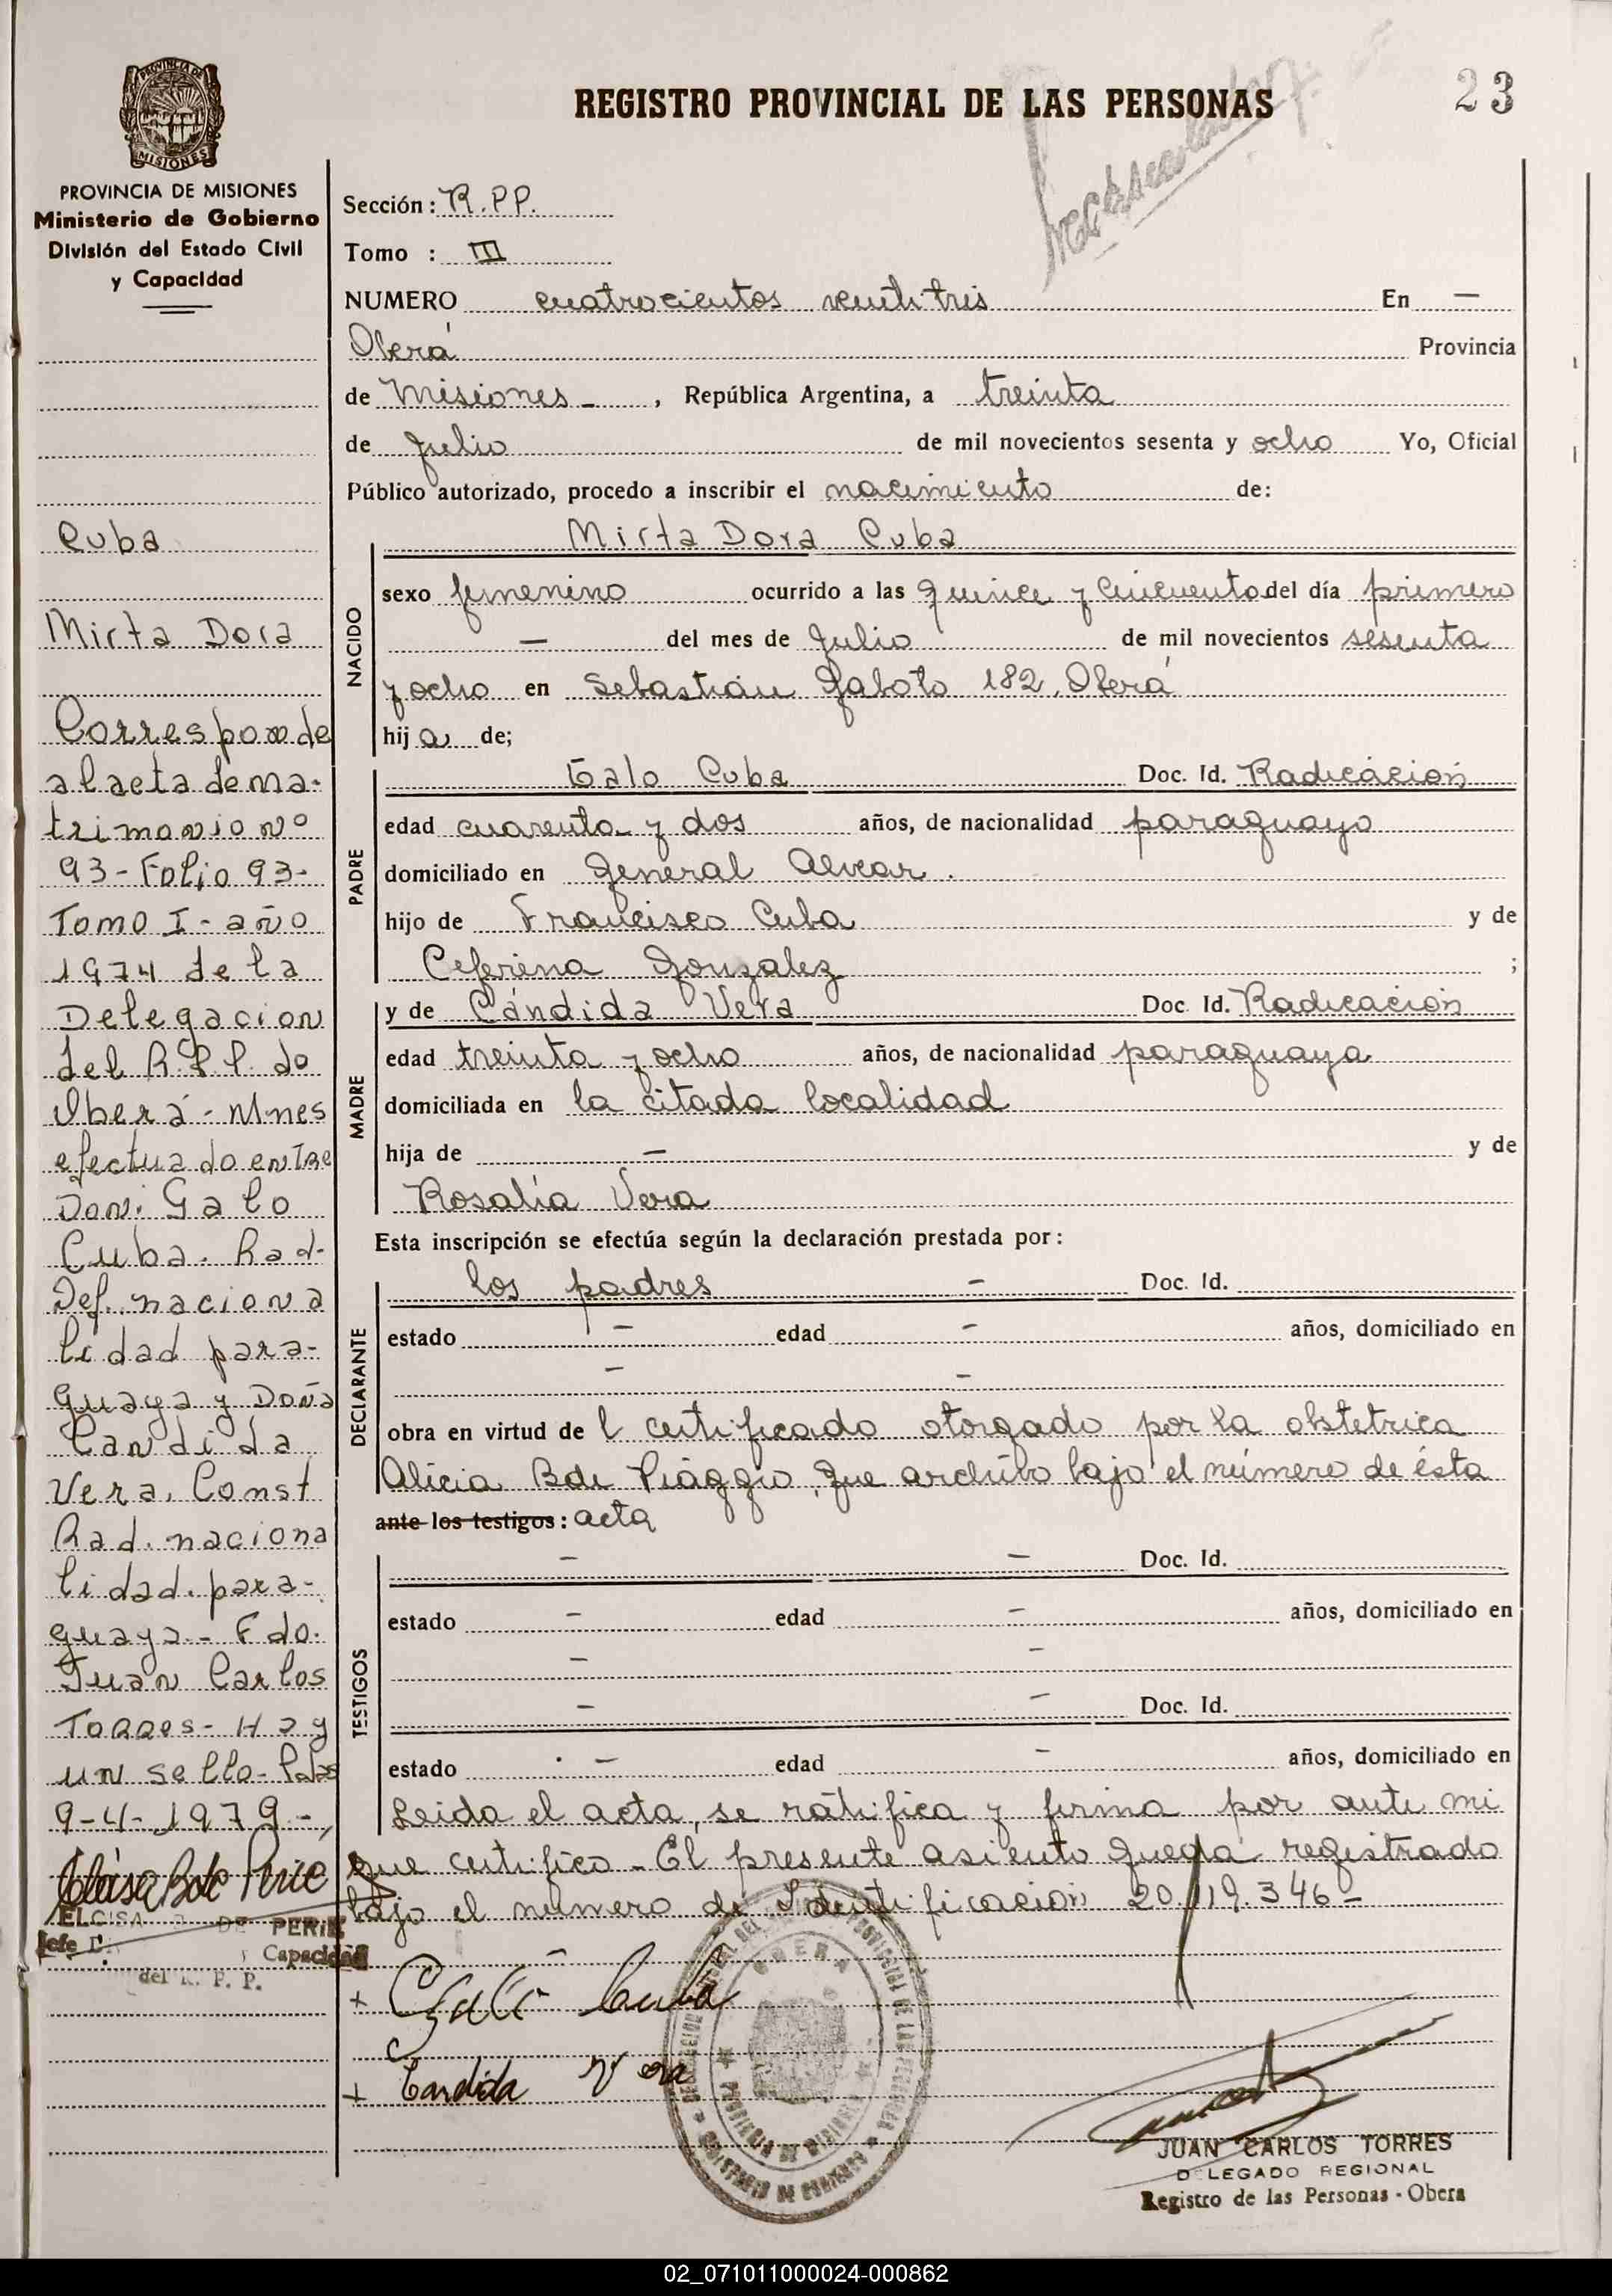 REGISTRO PROVINCIAL DE LAS PERSONAS
23
PROVINCIA DE
MISIONES
PROVINCIA DE MISIONES
Ministerio de Gobierno
División del Estado Civil
y Capacidad
Cuba
Mirta Dora
Corresponde
al acta de ma-
trimonio nº
93-Folio 93-
Tomo I-año
1974 de la
Delegacion
del R.P.P. de
Oberá-Mnes
efectuado entre
Don: Galo
Cuba. Rad-
Def. naciona
lidad para-
guaya y Doña
Candida
Vera, Const
Rad. naciona
lidad para-
guaya-Fdo.
Juan Carlos
Torres-Hay
un sello-Pdas
9-4-1979-
ELOISA DE PERIE
Jefe Capacidad
del R. P. P.
Sección: R.PP.
Tomo : III
NUMERO cuatrocientos veintitres En —
Oberá Provincia
de Misiones - , República Argentina, a treinta
de Julio de mil novecientos sesenta y ocho Yo, Oficial
Público autorizado, procedo a inscribir el nacimiento de:
Mirta Dora Cuba
NACIDO
sexo femenino ocurrido a las quince y cincuenta del día primero
— del mes de Julio de mil novecientos sesenta
y ocho en Sebastián Gaboto 182, Oberá
hija de;
PADRE
Galo Cuba Doc. Id. Radicación
edad cuarenta y dos años, de nacionalidad paraguayo
domiciliado en General Alvear.
hijo de Francisco Cuba y de
Ceferina Gonzalez ;
MADRE
y de Cándida Vera Doc. Id. Radicación
edad treinta y ocho años, de nacionalidad paraguaya
domiciliada en la citada localidad
hija de — y de
Rosalía Vera
Esta inscripción se efectúa según la declaración prestada por:
DECLARANTE
los padres - Doc. Id.
estado - edad - años, domiciliado en
- -
obra en virtud de l certificado otorgado por la obstetrica
Alicia B de Piaggio, que archivo bajo el número de ésta
ante los testigos: acta
TESTIGOS
- - Doc. Id.
estado - edad - años, domiciliado en
- -
- - Doc. Id.
estado - edad - años, domiciliado en
Leida el acta, se ratifica y firma por ante mi
que certifico - El presente asiento queda registrado
bajo el número de Identificacion 20.119.346-
+ Galo Cuba
+ Candida Vera
JUAN CARLOS TORRES
DELEGADO REGIONAL
Registro de las Personas - Obera
02_071011000024-000862